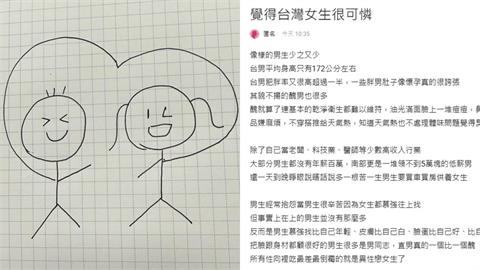 覺得台灣女生很可憐
匿名・今天 10:35
像樣的男生少之又少
台男平均身高只有172公分左右
台男肥胖率又很高超過一半,一些胖男肚子像懷孕真的很誇張
其貌不揚的醜男也很多
醜就算了連基本的乾淨衛生都難以維持,油光滿面臉上一堆痘痘,
品嫌麻煩,不穿搭推給天氣熱,知道天氣熱也不處理體味問題覺得
除了自己當老闆、科技業、醫師等少數高收入行業
大部分男生都沒有年薪百萬,南部更是一堆領不到5萬塊的低薪男
還一天到晚睜眼說瞎話說多一根苦一生男生要買車買房供養女生
男生經常抱怨當男生很辛苦因為女生都慕強往上找
但事實上在上的男生並沒有那麼多
反而是男生慕強找比自己年輕、皮膚比自己白、臉蛋比自己好、比
把臉跟身材都顧很好的男生很多是男同志,直男真的一個比一個醜
所有性向裡吃最差最倒霉的就是異性戀女生了